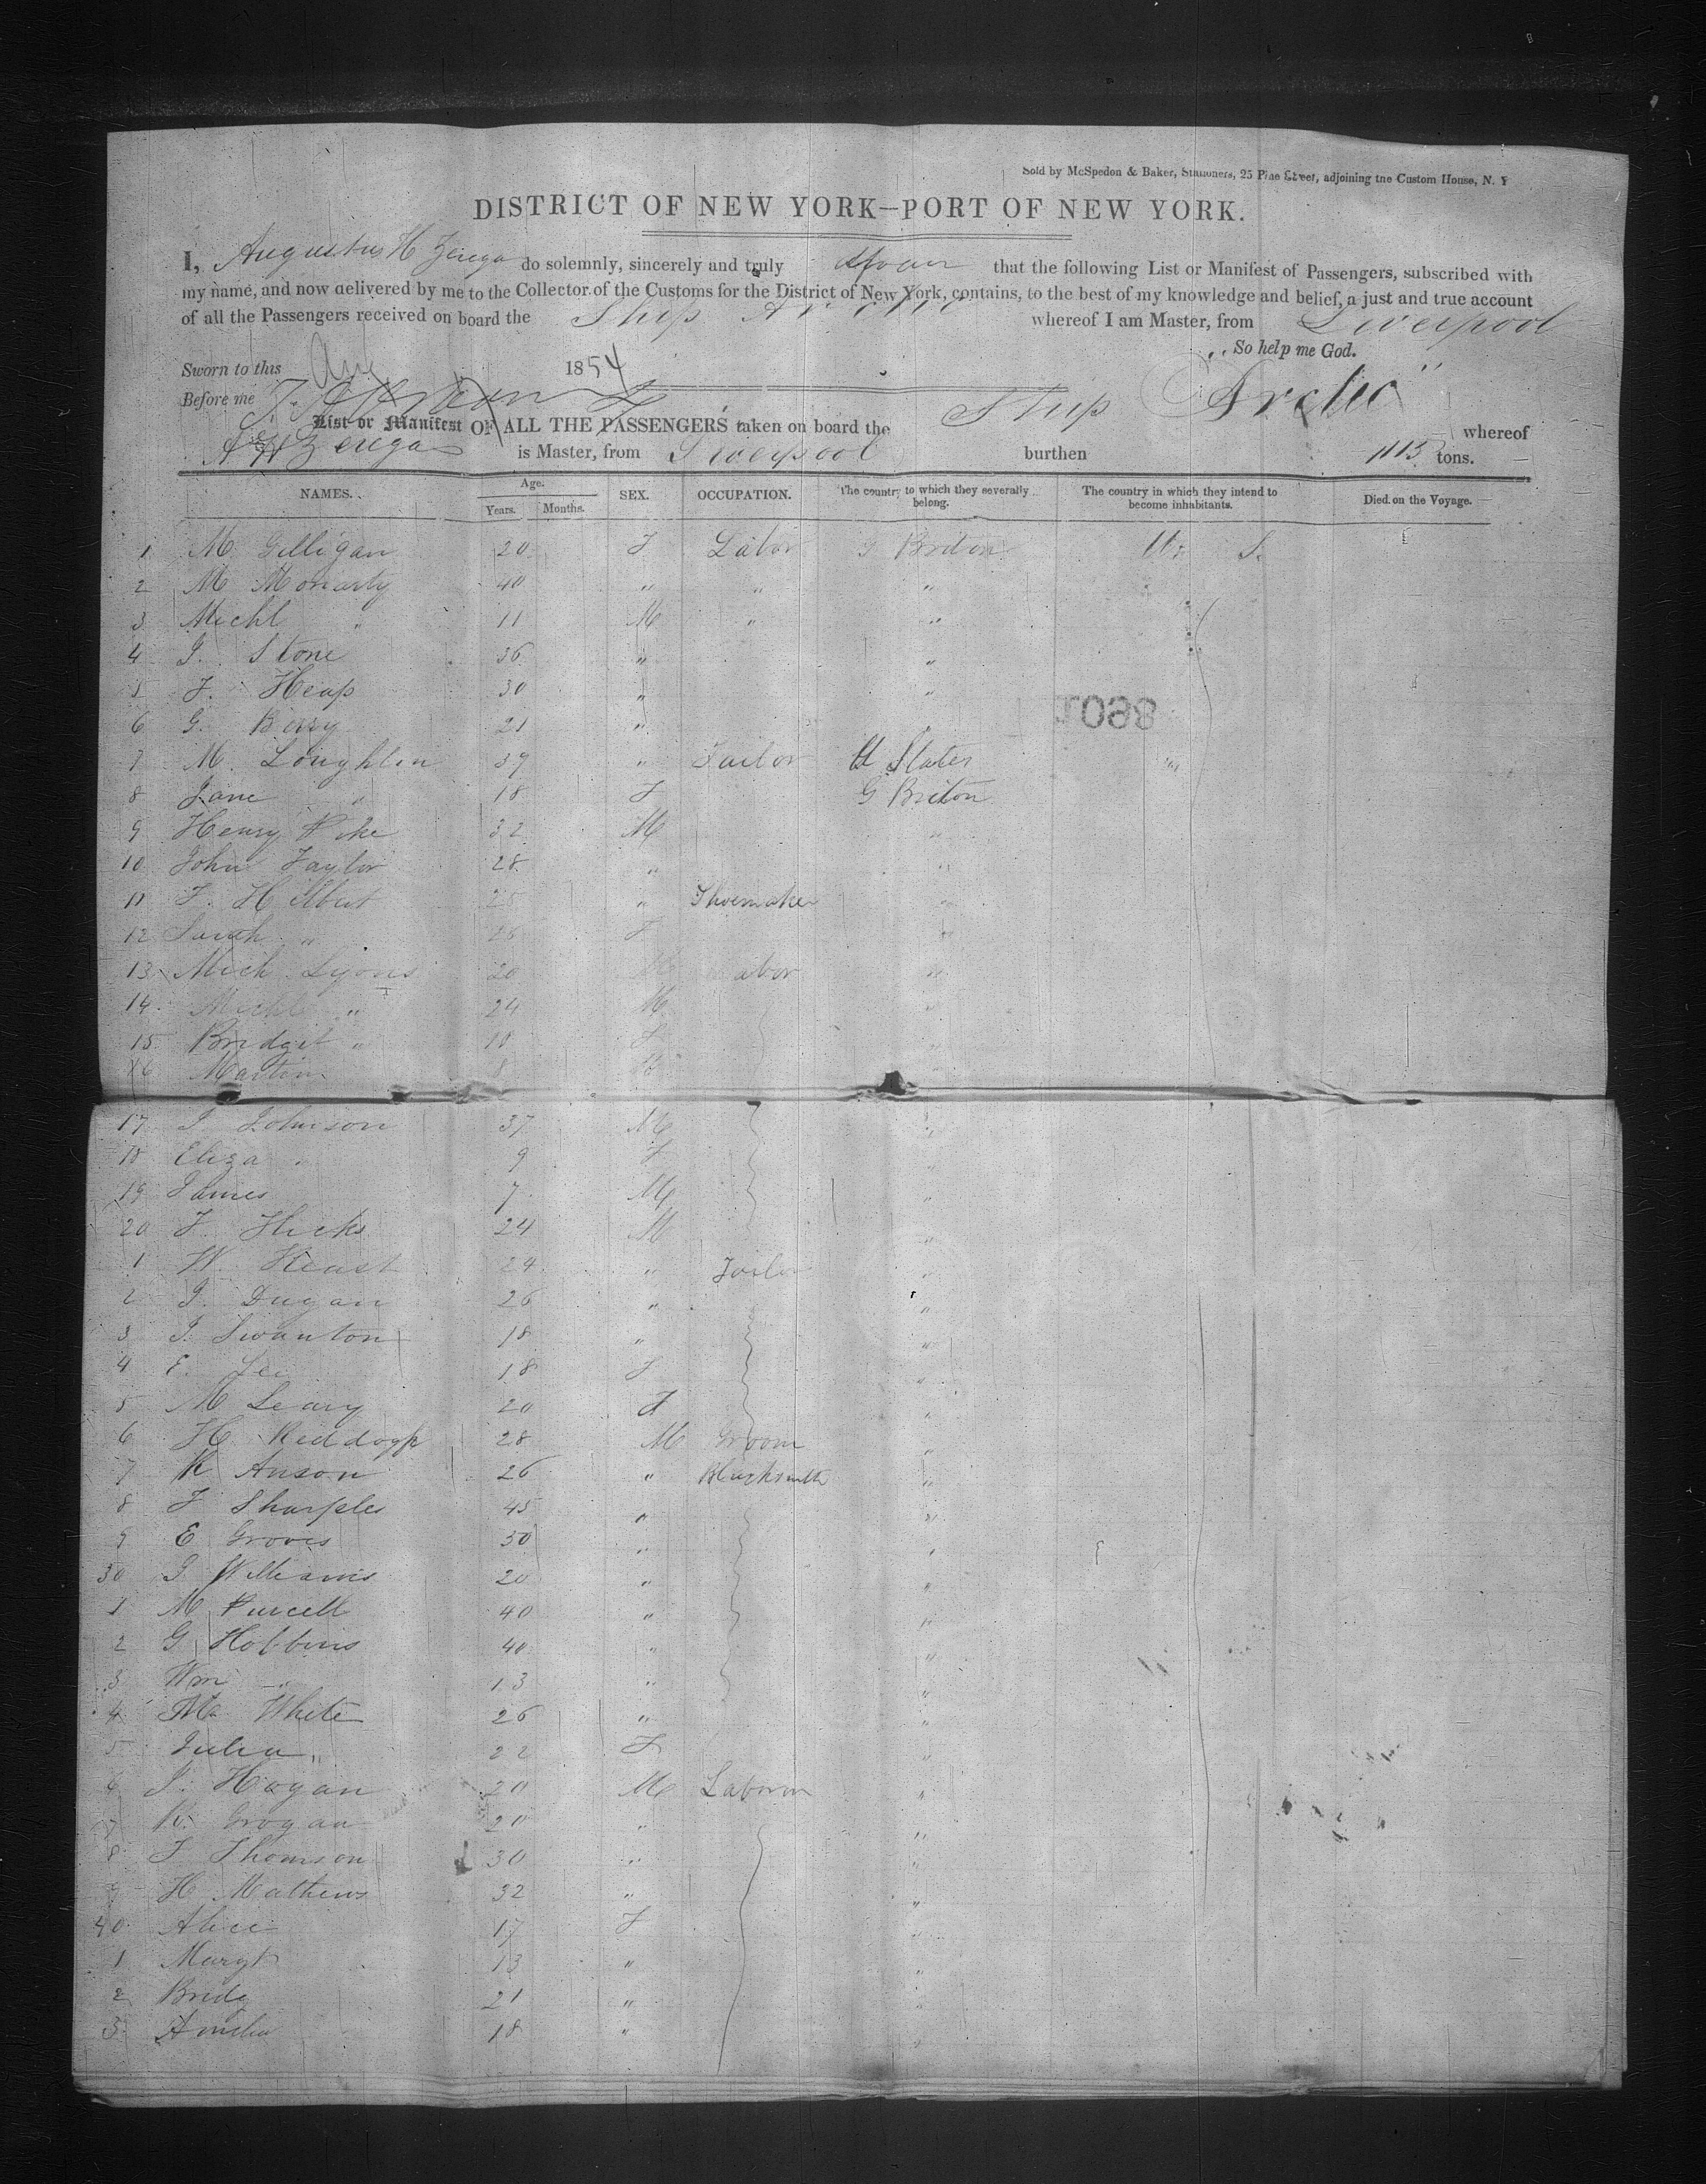 Sold by McSpedon & Baker, Stationers, 25 Pine Street, adjoining the Custom House, N. Y
DISTRICT OF NEW YORK—PORT OF NEW YORK.
I, Augustus H Zerega do solemnly, sincerely and truly swear that the following List or Manifest of Passengers, subscribed with
my name, and now delivered by me to the Collector of the Customs for the District of New York, contains, to the best of my knowledge and belief, a just and true account
of all the Passengers received on board the Ship Arctic whereof I am Master, from Liverpool
So help me God.
Sworn to this 1854
Before me
List or Manifest OF ALL THE PASSENGERS taken on board the Ship "Arctic" whereof
A H Zerega is Master, from Liverpool burthen 1115 tons.
NAMES. Age. Years. Months. SEX. OCCUPATION. The country to which they severally belong. The country in which they intend to become inhabitants. Died on the Voyage.
1 M Gilligan 20 F Labor G Briton U. S.
2 M Moriarty 40 " " "
3 Michl " 11 M " "
4 J. Stone 36 " "
5 J. Heap 30 " "
6 G. Berry 21 "
7 M. Loughlin 39 " Tailor U States
8 Jane " 18 F G Briton
9 Henry Pike 32 M "
10 John Taylor 28 " "
11 F. Hilbut 25 " Shoemaker "
12 Sarah " 26 F "
13 Mich Lyons 20 M Labor "
14 Michl " 24 M "
15 Bridget " 10 F "
16 Martin 8
17 J Johnson 37 M "
18 Eliza 9 F "
19 James 7 M "
20 J Hicks 24 M "
1 W Heast 24 " Tailor "
2 J. Dugan 26 " "
3 J. Swanton 18 " "
4 E. Lee 18 F "
5 M Leary 20 F "
6 H. 28 M Groom "
7 R Anson 26 " Blacksmith "
8 J Sharples 45 " "
9 E Groves 30 " "
30 J Williams 20 " "
1 M Purcell 40 " "
2 G Hobbins 40 " "
3 Wm " 13 " "
4 M. White 26 " "
5 Julia " 22 F "
6 J. Hogan 20 M Laborer "
7 K. Grogan 20 " "
8 J Thomson 30 " "
9 H Mathews 32 " "
40 Alice 17 F "
1 Margt 13 " "
2 Bridg 21 " "
3 Amelia 18 " "